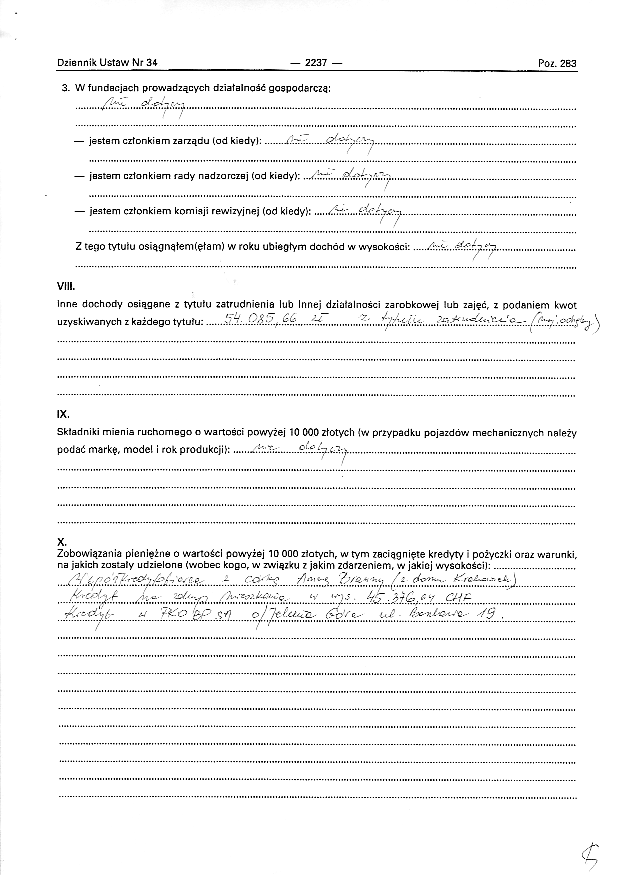 Dziennik Ustaw Nr 34 — 2237 — Poz. 283
3. W fundacjach prowadzących działalność gospodarczą:
nie dotyczy
— jestem członkiem zarządu (od kiedy): nie dotyczy
— jestem członkiem rady nadzorczej (od kiedy): nie dotyczy
— jestem członkiem komisji rewizyjnej (od kiedy): nie dotyczy
Z tego tytułu osiągnąłem(ęłam) w roku ubiegłym dochód w wysokości: nie dotyczy
VIII.
Inne dochody osiągane z tytułu zatrudnienia lub innej działalności zarobkowej lub zajęć, z podaniem kwot
uzyskiwanych z każdego tytułu: 54.085,66 zł z tytułu zatrudnienia
IX.
Składniki mienia ruchomego o wartości powyżej 10 000 złotych (w przypadku pojazdów mechanicznych należy
podać markę, model i rok produkcji): nie dotyczy
X.
Zobowiązania pieniężne o wartości powyżej 10 000 złotych, w tym zaciągnięte kredyty i pożyczki oraz warunki,
na jakich zostały udzielone (wobec kogo, w związku z jakim zdarzeniem, w jakiej wysokości):
Współkredytobiorca z córką Anną (z domu
Kredyt na zakup mieszkania w wys. 45.376,04 CHF
Kredyt w PKO BP SA o/Jelenia Góra ul. Bankowa 19